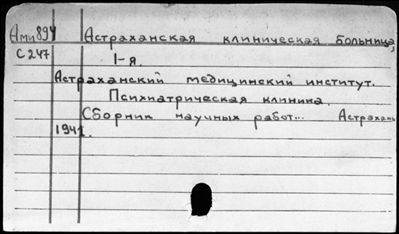 Ами894 Астраханская клиническая больница,
С247 1-я.
Астраханский медицинский институт.
Психиатрическая клиника.
Сборник научных работ... Астрахань
1941.